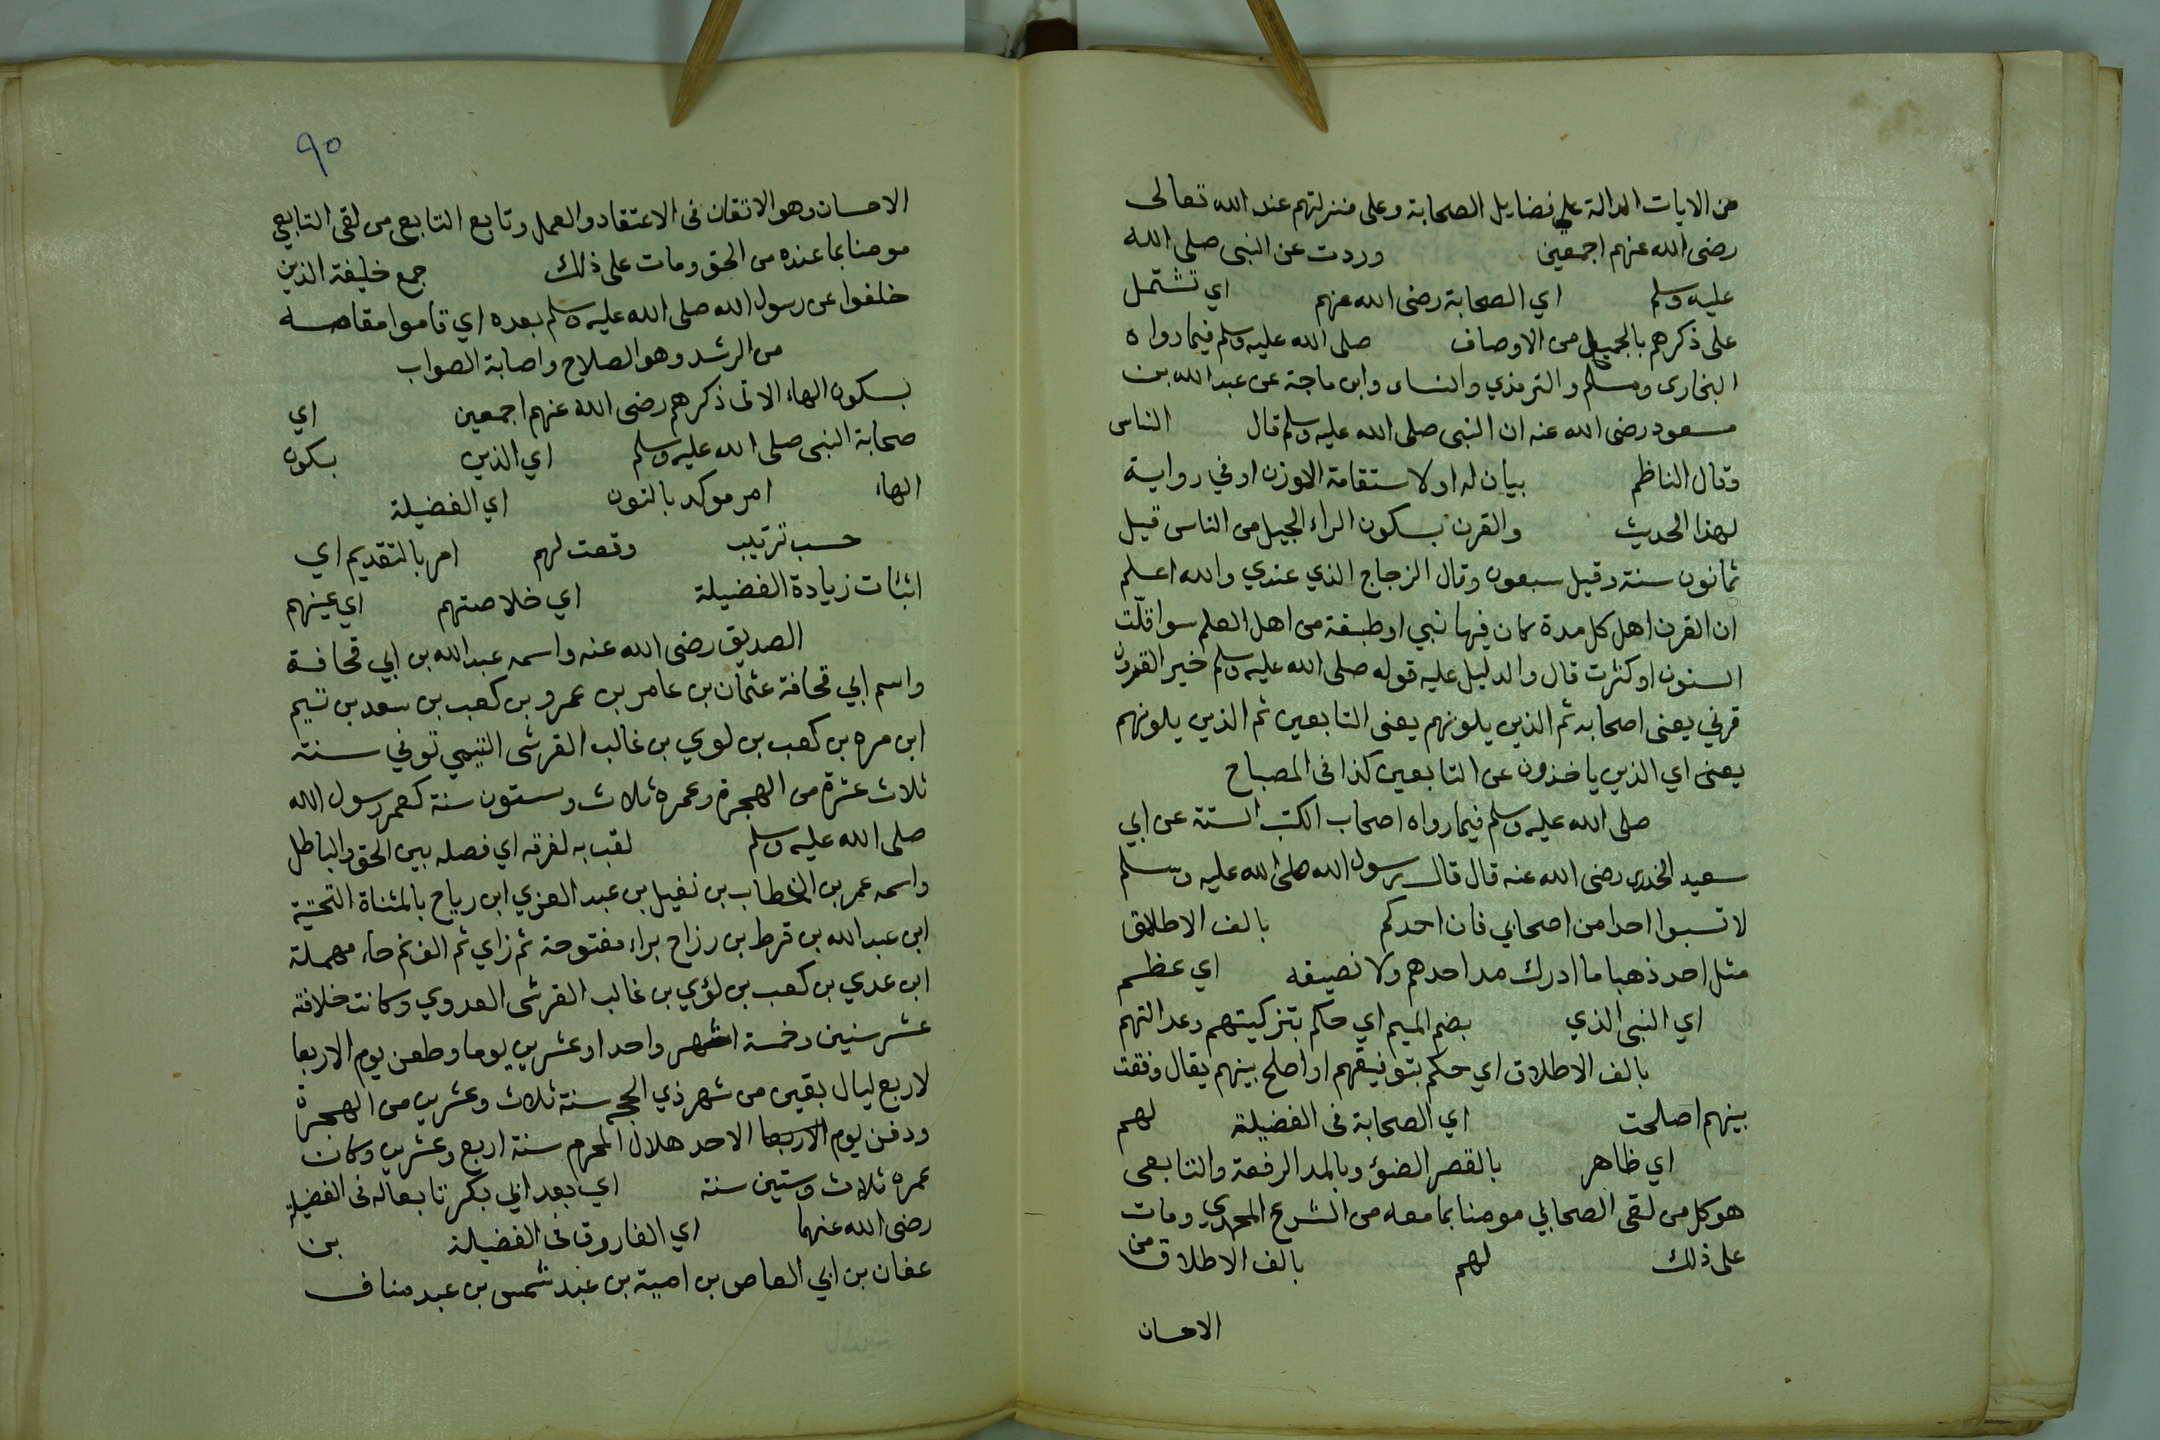 من الايات الدالة علي فضايل الصحابة وعلى منزلتهم عند الله تعالى
رضى الله عنهم اجمعين وردت عن النبى صلى الله
عليه وسلم اي الصحابة رضى الله عنهم اي تشتمل
على ذكرهم بالجميل من الاوصاف صلى الله عليه وسلم فيما رواه
البخارى ومسلم والترمذي والنساى وابن ماجة عن عبد الله بن
مسعود رضى الله عنه ان النبى صلى الله عليه وسلم قال الناس
وقال الناظم بيان له او لاستقامة الوزن او في رواية
لهذا الحديث والقرن بسكون الراء الجيل من الناس قيل
ثمانون سنة وقيل سبعون وقال الزجاج الذي عندي والله اعلم
ان القرن اهل كل مدة كان فيها نبي او طبقة من اهل العلم سوا قلّت
السنون او كثرت قال والدليل عليه قوله صلى الله عليه وسلم خير القرون
قرني يعنى اصحابه ثم الذين يلونهم يعنى التابعين ثم الذين يلونهم
يعنى اي الذين ياخذون عن التابعين كذا فى المصباح
صلى الله عليه وسلم فيما رواه اصحاب الكتب الستة عن ابي
سعيد الخدرى رضى الله عنه قال قال رسول الله صلى الله عليه وسلم
لا تسبوا احدا من اصحابي فان احدكم بالف الاطلاق
مثل احد ذهبا ما ادرك مد احدهم ولا نصيفه اي عظم
اي النبى الذي بضم الميم اي حكم بتزكيتهم وعدالتهم
بالف الاطلاق اي حكم بتوفيقهم او اصلح بينهم يقال وفقت
بينهم اصلحت اي الصحابة فى الفضيلة لهم
اي ظاهر بالقصر الضؤ وبالمد الرفعة والتابعى
هو كل من لقى الصحابي مومنا بما معه من الشرع المحمدي ومات
على ذلك لهم بالف الاطلاق من
الاحسان
٩٠
الاحسان وهو الاتقان فى الاعتقاد والعمل وتابع التابعي من لقى التابعي
مومنا بما عنده من الحق ومات على ذلك جمع خليفة الذين
خلفوا عن رسول الله صلى الله عليه وسلم بعده اي قاموا مقامه
من الرشد وهو الصلاح واصابة الصواب
بسكون الهاء الاتى ذكرهم رضى الله عنهم اجمعين اي
صحابة النبى صلى الله عليه وسلم اي الذين بسكون
الهاء امر موكد بالنون اي الفضيلة
حسب ترتيب وقعت لهم امر بالتقديم اي
اثبات زيادة الفضيلة اي خلاصتهم اي عينهم
الصديق رضى الله عنه واسمه عبد الله بن ابي قحافة
واسم ابي قحافة عثمان بن عامر بن عمرو بن كعب بن سعد بن تيم
ابن مره بن كعب بن لوي بن غالب القرشى التيمي توفي سنة
ثلاث عشرة من الهجرة وعمره ثلاث وستون سنة كعمر رسول الله
صلى الله عليه وسلم لقب به لفرقه اي فصله بين الحق والباطل
واسمه عمر بن الخطاب بن نفيل بن عبد العزي ابن رياح بالمثناة التحتية
ابن عبد الله بن قرط بن رزاح براء مفتوحة ثم زاي ثم الف ثم حاء مهملة
ابن عدي بن كعب بن لؤي بن غالب القرشى العدوي وكانت خلافته
عشر سنين وخمسة اشهر واحدا وعشرين يوما وطعن يوم الاربعا
لاربع ليال بقين من شهر ذي الحجه سنة ثلاث وعشرين من الهجرة
ودفن يوم الاربعا الاحد هلال المحرم سنة اربع وعشرين وكان
عمره ثلاث وستين سنة اي بعد ابي بكر تابعا له فى الفضيلة
رضى الله عنهما اي الفاروق فى الفضيلة بن
عفان بن ابي العاص بن امية بن عبد شمس بن عبد مناف